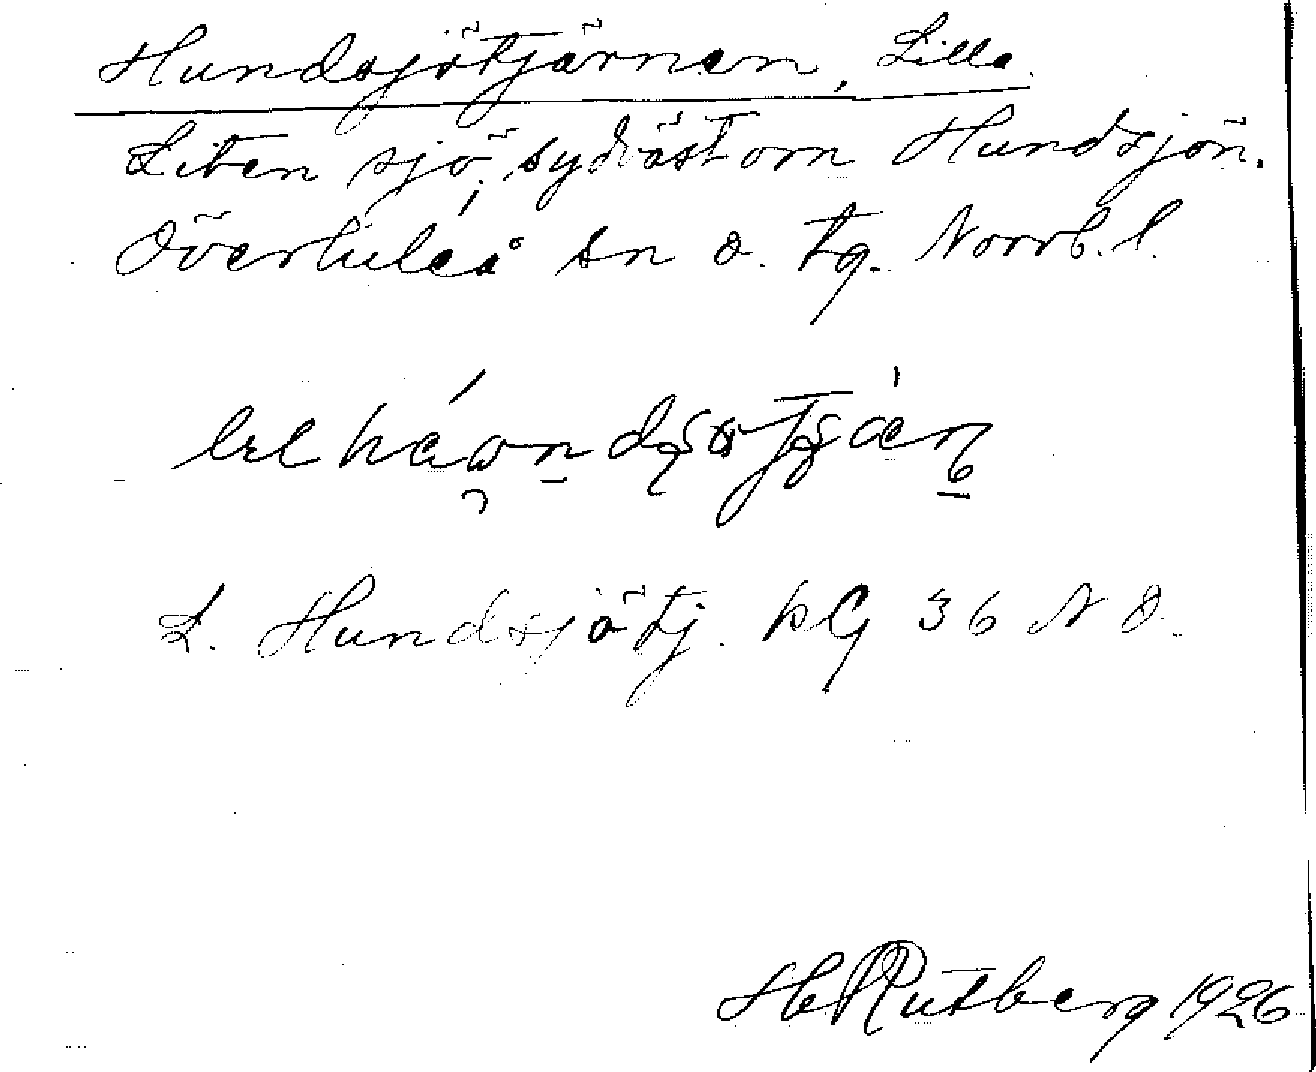 Hundsjötjärnen, Lilla.
Liten sjö, sydväst om Hundsjön.
Överluleå sn o. tg. Norrb. l.
L. Hundsjötj. kG 36 NO.
H Rutberg 1926